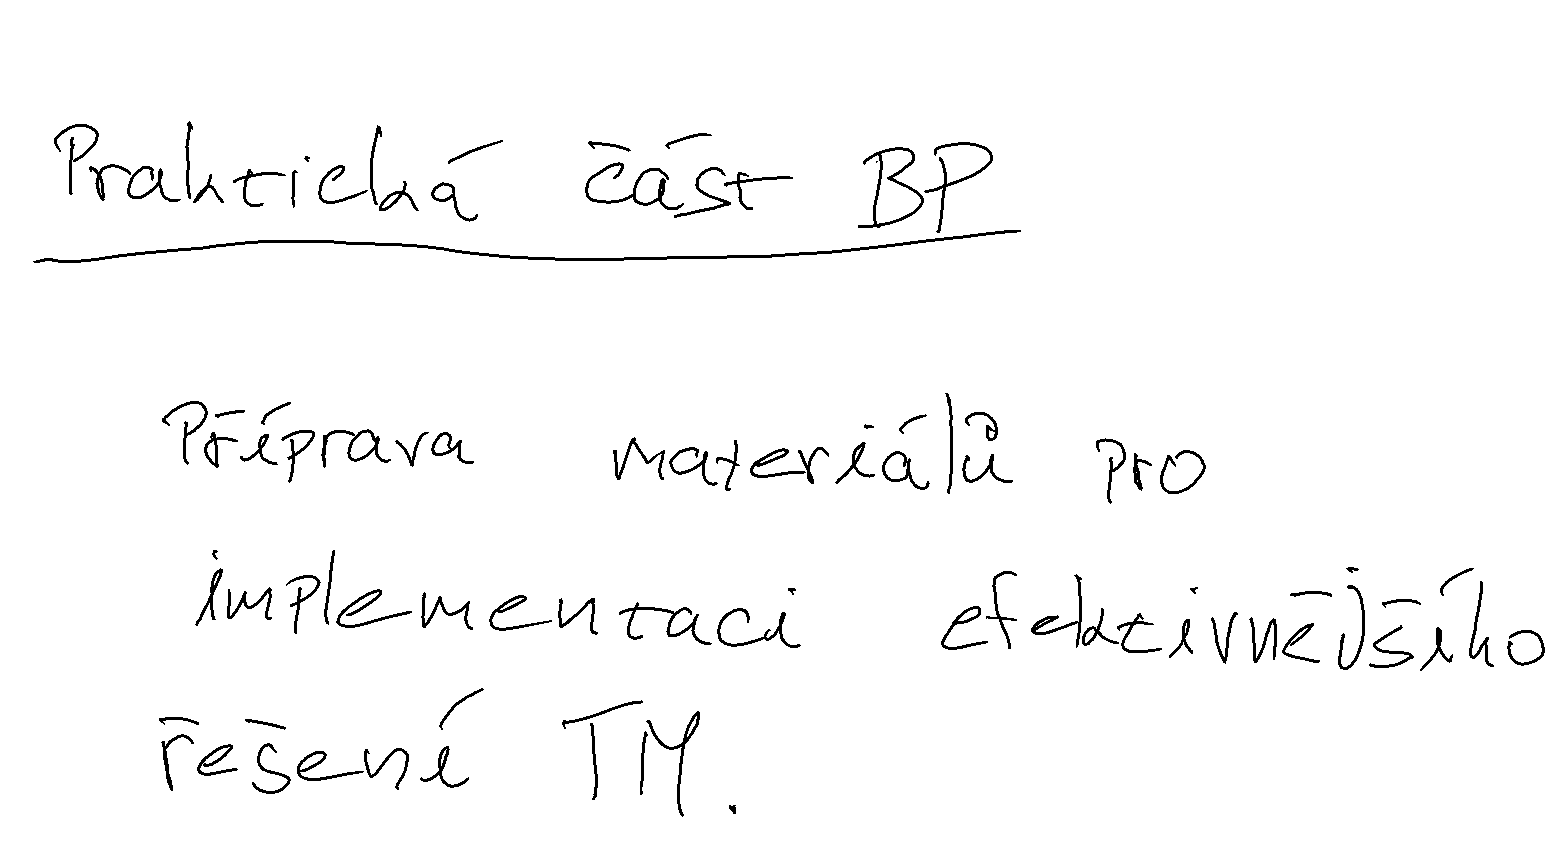 Praktická část BP
Příprava materiálů pro
implementaci efektivnějšího
řešení TM.